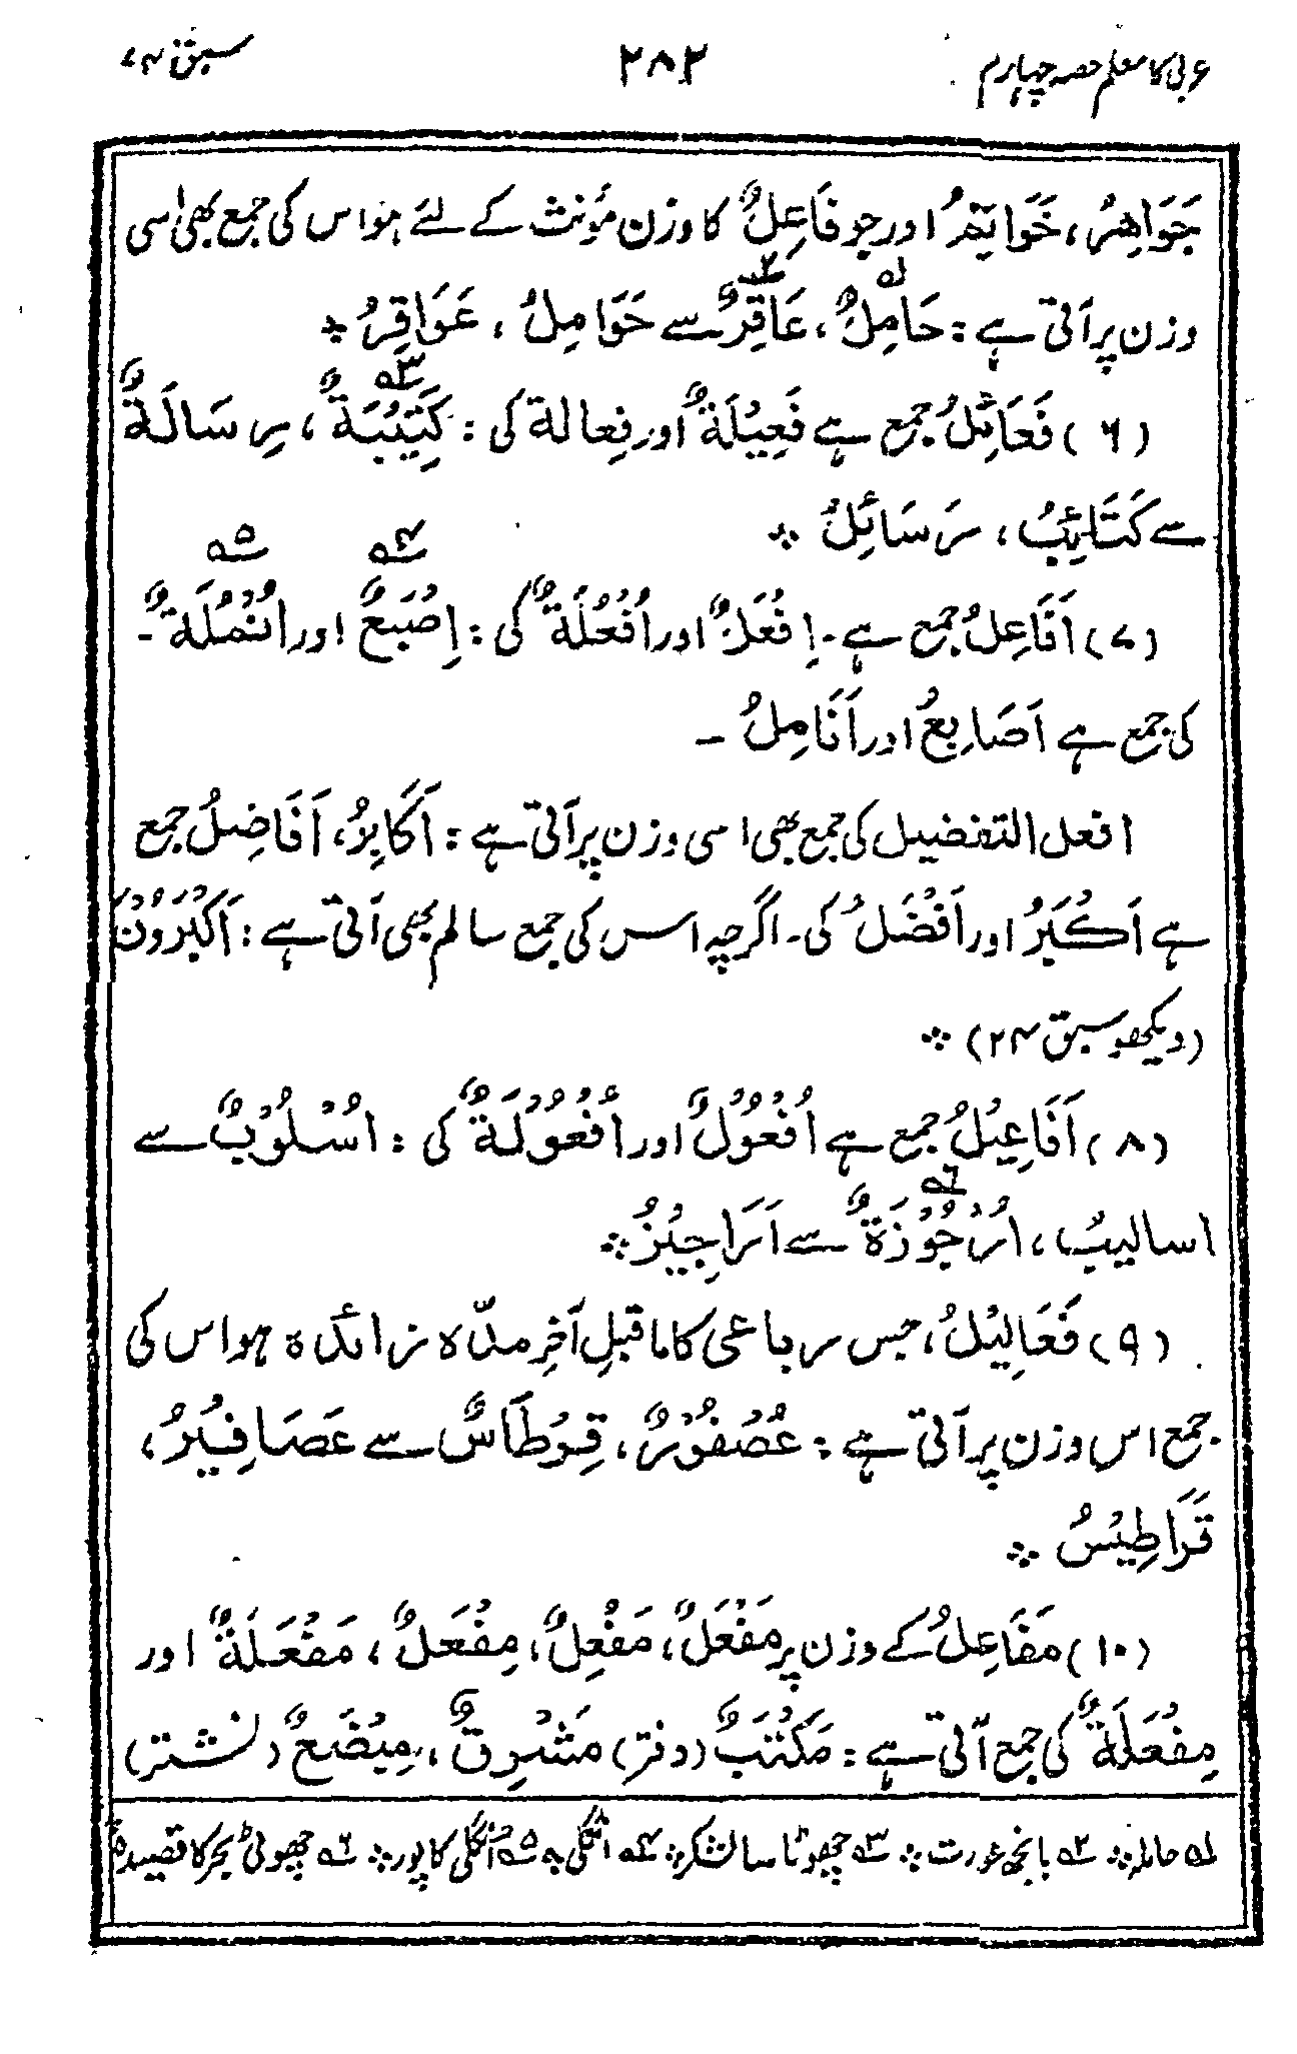 عربی کا معلم حصہ چہارم ۲۸۲ سبق ۷۴
جَوَاهِرُ، خَوَاتِمُ اور جو فَاعِلٌ کا وزن مؤنث کے لئے ہو اس کی جمع بھی اسی
وزن پر آتی ہے: حَامِلٌ ۱؎، عَاقِرٌ ۲؎ سے حَوَامِلُ، عَوَاقِرُ ؞
(۶) فَعَائِلُ جمع ہے فَعِيْلَةٌ اور فِعالة کی: كَتِيْبَةٌ ۳؎، رِسَالَةٌ
سے كَتَائِبُ، رَسَائِلُ ؞
(۷) اَفَاعِلُ جمع ہے۔ اِفْعَلٌ اور اُفْعُلَةٌ کی: اِصْبَعٌ ۴؎ اور اُنْمُلَةٌ ۵؎ ۔
کی جمع ہے اَصَابِعُ اور اَنَامِلُ ۔
افعل التفضیل کی جمع بھی اسی وزن پر آتی ہے: اَكَابِرُ، اَفَاضِلُ جمع
ہے اَكْبَرُ اور اَفْضَلُ کی۔ اگرچہ اس کی جمع سالم بھی آتی ہے: اَكْبَرُوْنَ
(دیکھو سبق ۲۴) ؞
(۸) اَفَاعِيْلُ جمع ہے اُفْعُوْلٌ اور اُفْعُوْلَةٌ کی: اُسْلُوْبٌ سے
اسالیبُ، اُرْجُوْزَةٌ ۶؎ سے اَرَاجِيْزُ ؞
(۹) فَعَالِيْلُ، جس رباعی کا ماقبلِ آخِر مدّہ زائدہ ہو اس کی
جمع اس وزن پر آتی ہے: عُصْفُوْرٌ، قِرْطَاسٌ سے عَصَافِيْرُ،
قَرَاطِيْسُ ؞
(۱۰) مَفَاعِلُ کے وزن پر مَفْعَلٌ، مَفْعِلٌ، مِفْعَلٌ، مَفْعَلَةٌ اور
مِفْعَلَةٌ کی جمع آتی ہے: مَكْتَبٌ (دفتر) مَشْرِقٌ، مِبْضَعٌ (نشتر)
۱؎ حاملہ ؞ ۲؎ بانجھ عورت ؞ ۳؎ چھوٹا سا لشکر ؞ ۴؎ انگلی ؞ ۵؎ انگلی کا پور ؞ ۶؎ چھوٹی بحر کا قصیدہ